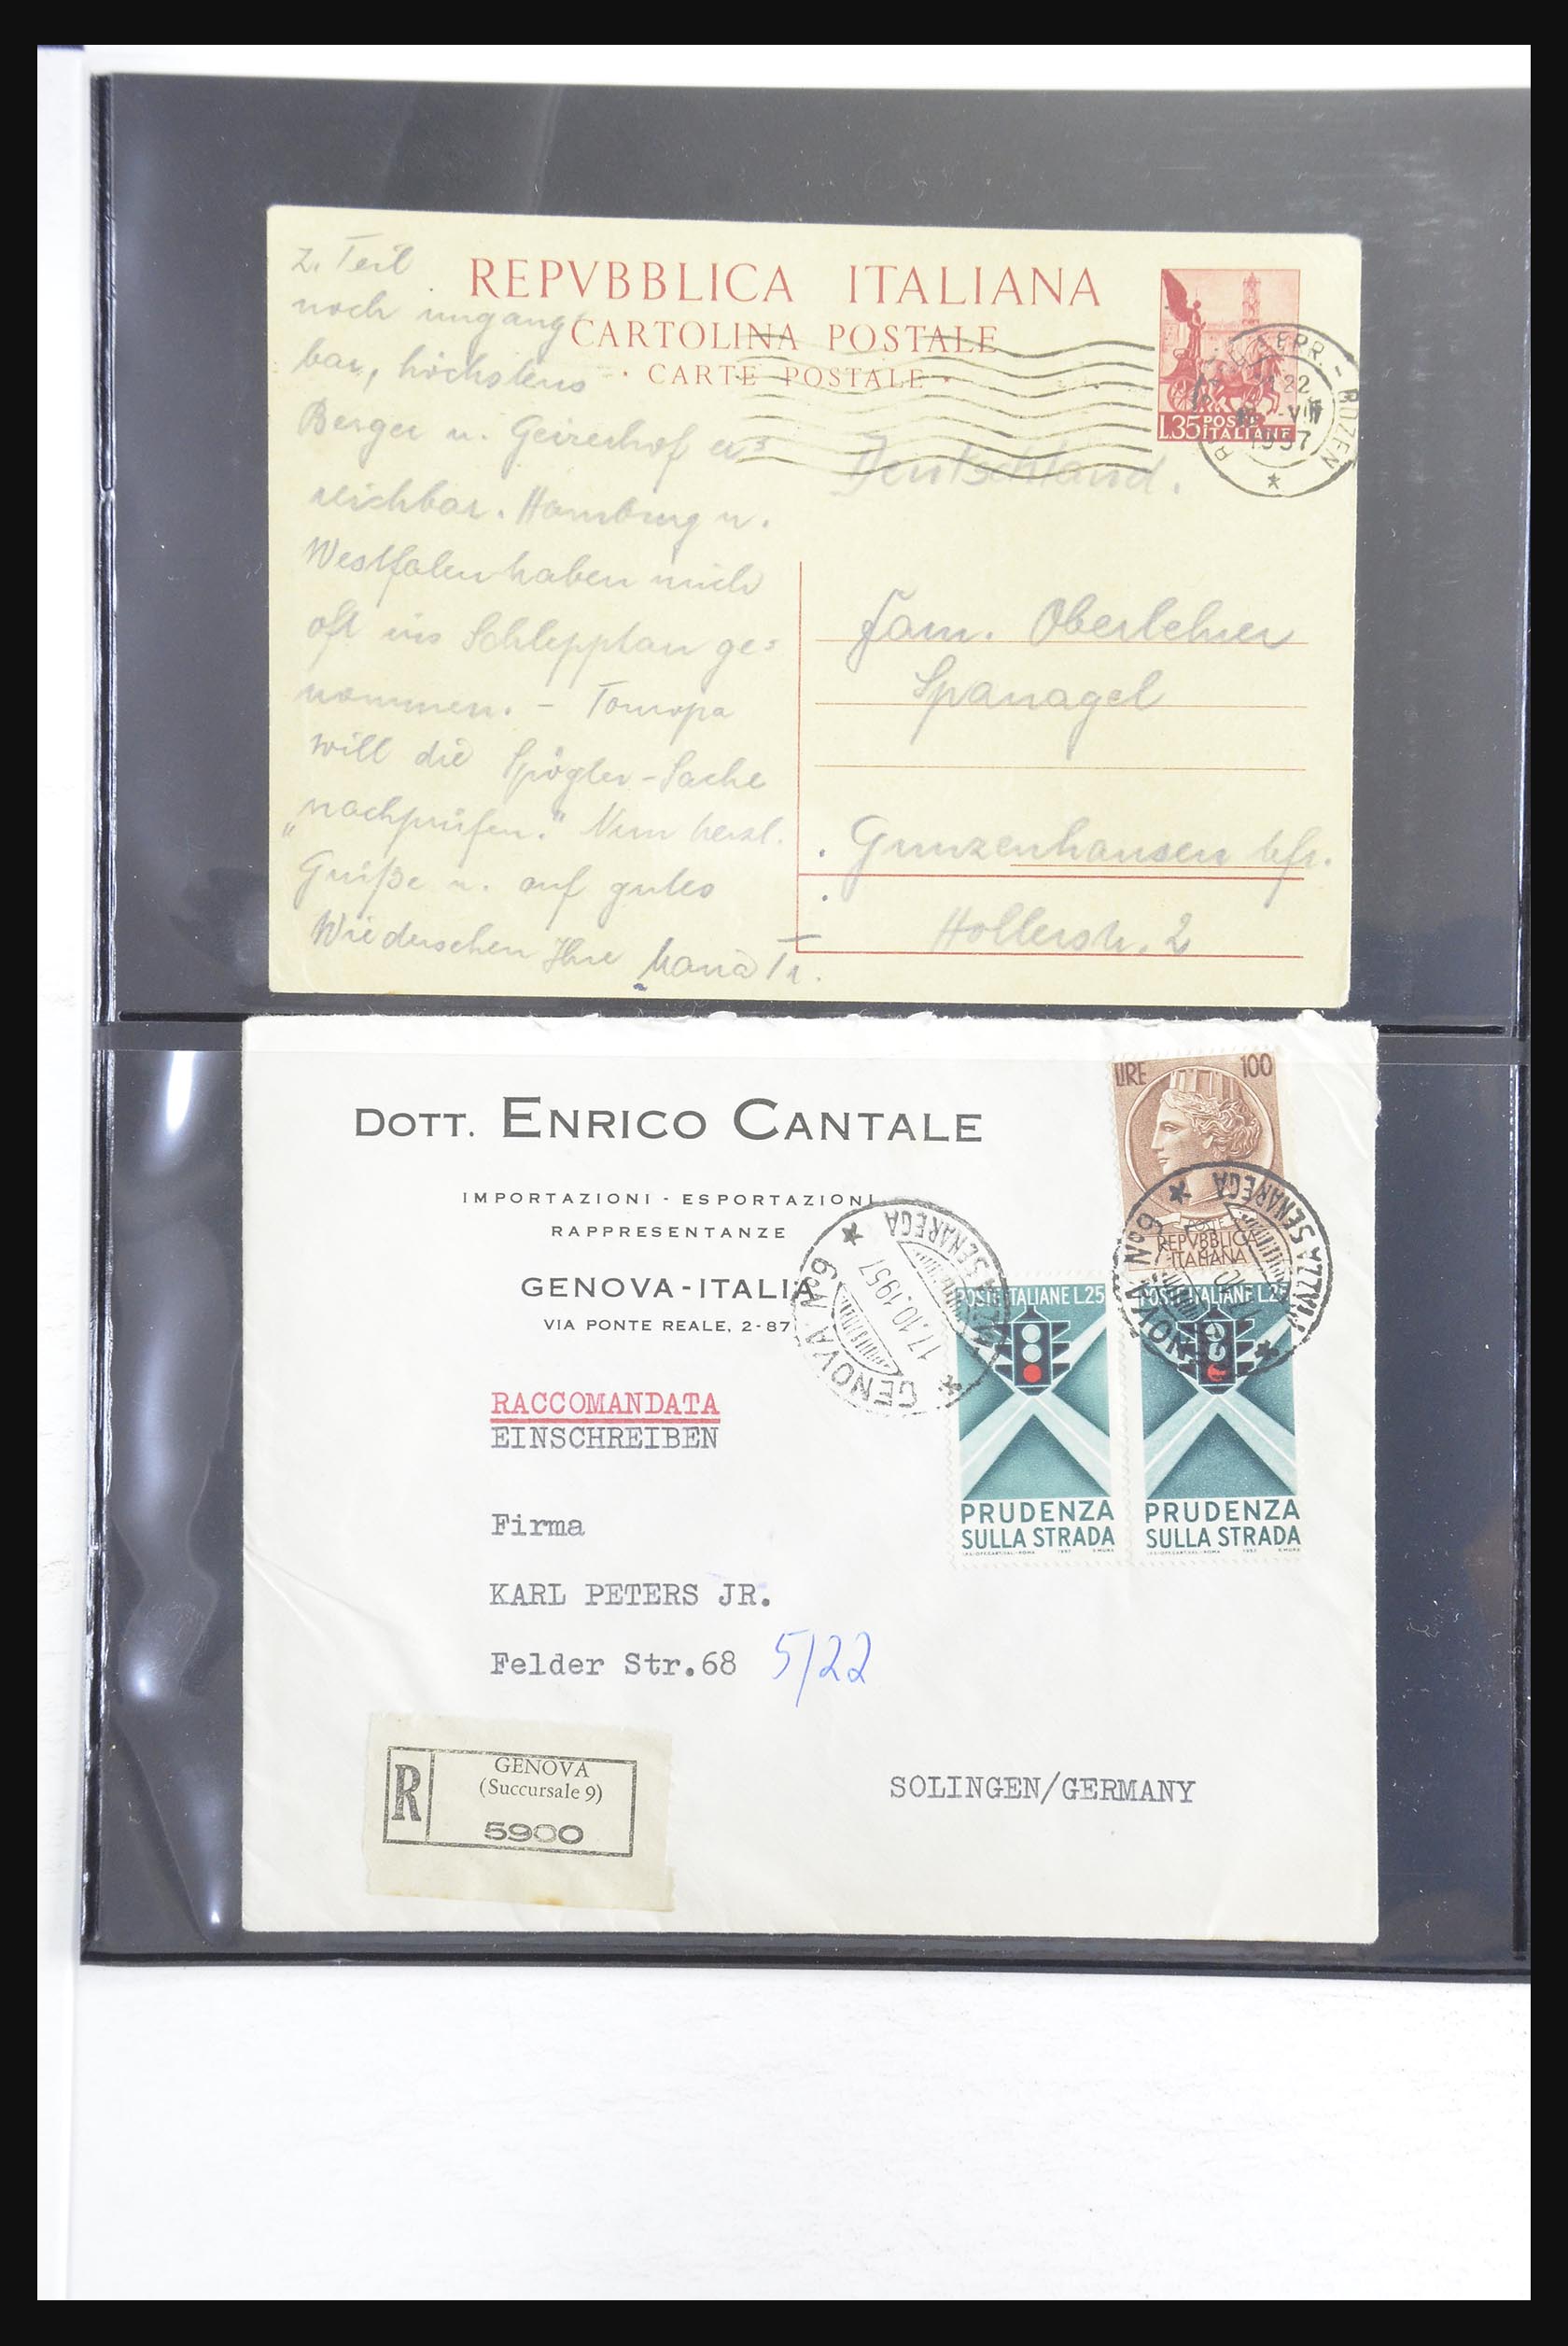 REPVBBLICA ITALIANA
CARTOLINA POSTALE
· CARTE POSTALE ·
L.35 POSTE ITALIANE
1957
z. Teil
noch ungang=
bar, höchstens
Berger u. Geirerhof er=
reichbar. Hamburg u.
Westfalen haben mich
oft ins Schlepptau ge=
nommen. – Touropa
will die Spögler-Sache
„nachprüfen." Nun herzl.
Grüße u. auf gutes
Wiedersehen Ihre Maria Tr.
Deutschland.
Fam. Oberlehrer
Spanagel
Gunzenhausen
Hollerstr. 2
DOTT. ENRICO CANTALE
IMPORTAZIONI - ESPORTAZIONI
RAPPRESENTANZE
GENOVA - ITALIA
VIA PONTE REALE, 2-87
LIRE 100
POSTE
REPVBBLICA
ITALIANA
GENOVA No 9 * PIAZZA SENAREGA *
17.10.1957
GENOVA No 9 * PIAZZA SENAREGA *
POSTE ITALIANE L.25
PRUDENZA
SULLA STRADA
POSTE ITALIANE L.25
PRUDENZA
SULLA STRADA
RACCOMANDATA
EINSCHREIBEN
Firma
KARL PETERS JR.
Felder Str.68 5/22
SOLINGEN/GERMANY
R
GENOVA
(Succursale 9)
5900